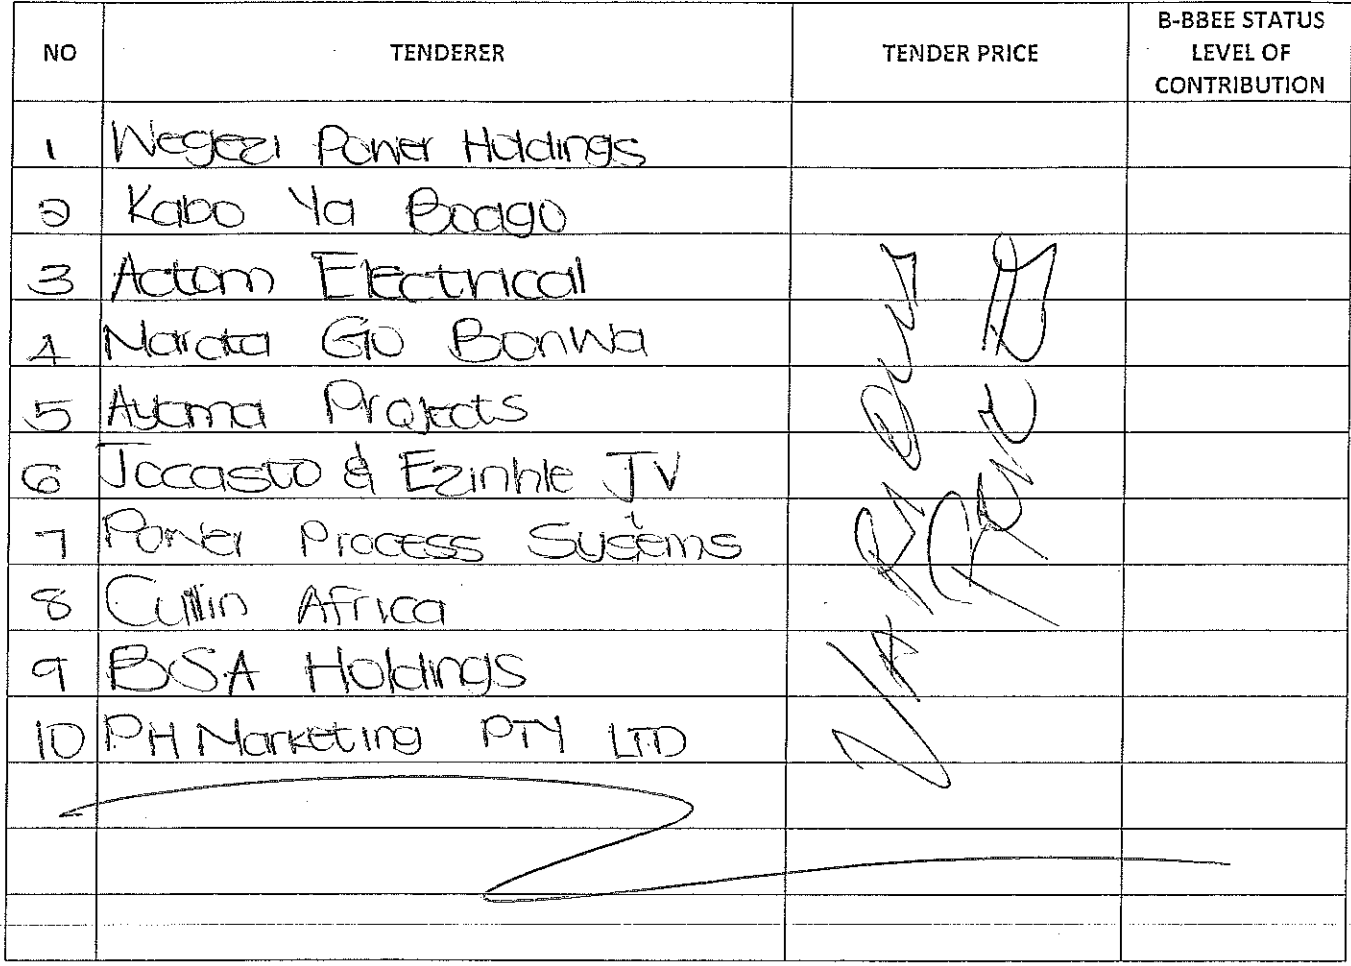 NO TENDERER TENDER PRICE B-BBEE STATUS LEVEL OF CONTRIBUTION
1 Wegezi Power Holdings
2 Kabo Ya Boago
3 Actom Electrical
4 Marata Go Bonwa
5 Ayama Projects
6 Jocasto & Ezinhle JV
7 Power Process Systems
8 Cullin Africa
9 BSA Holdings
10 PH Marketing PTY LTD